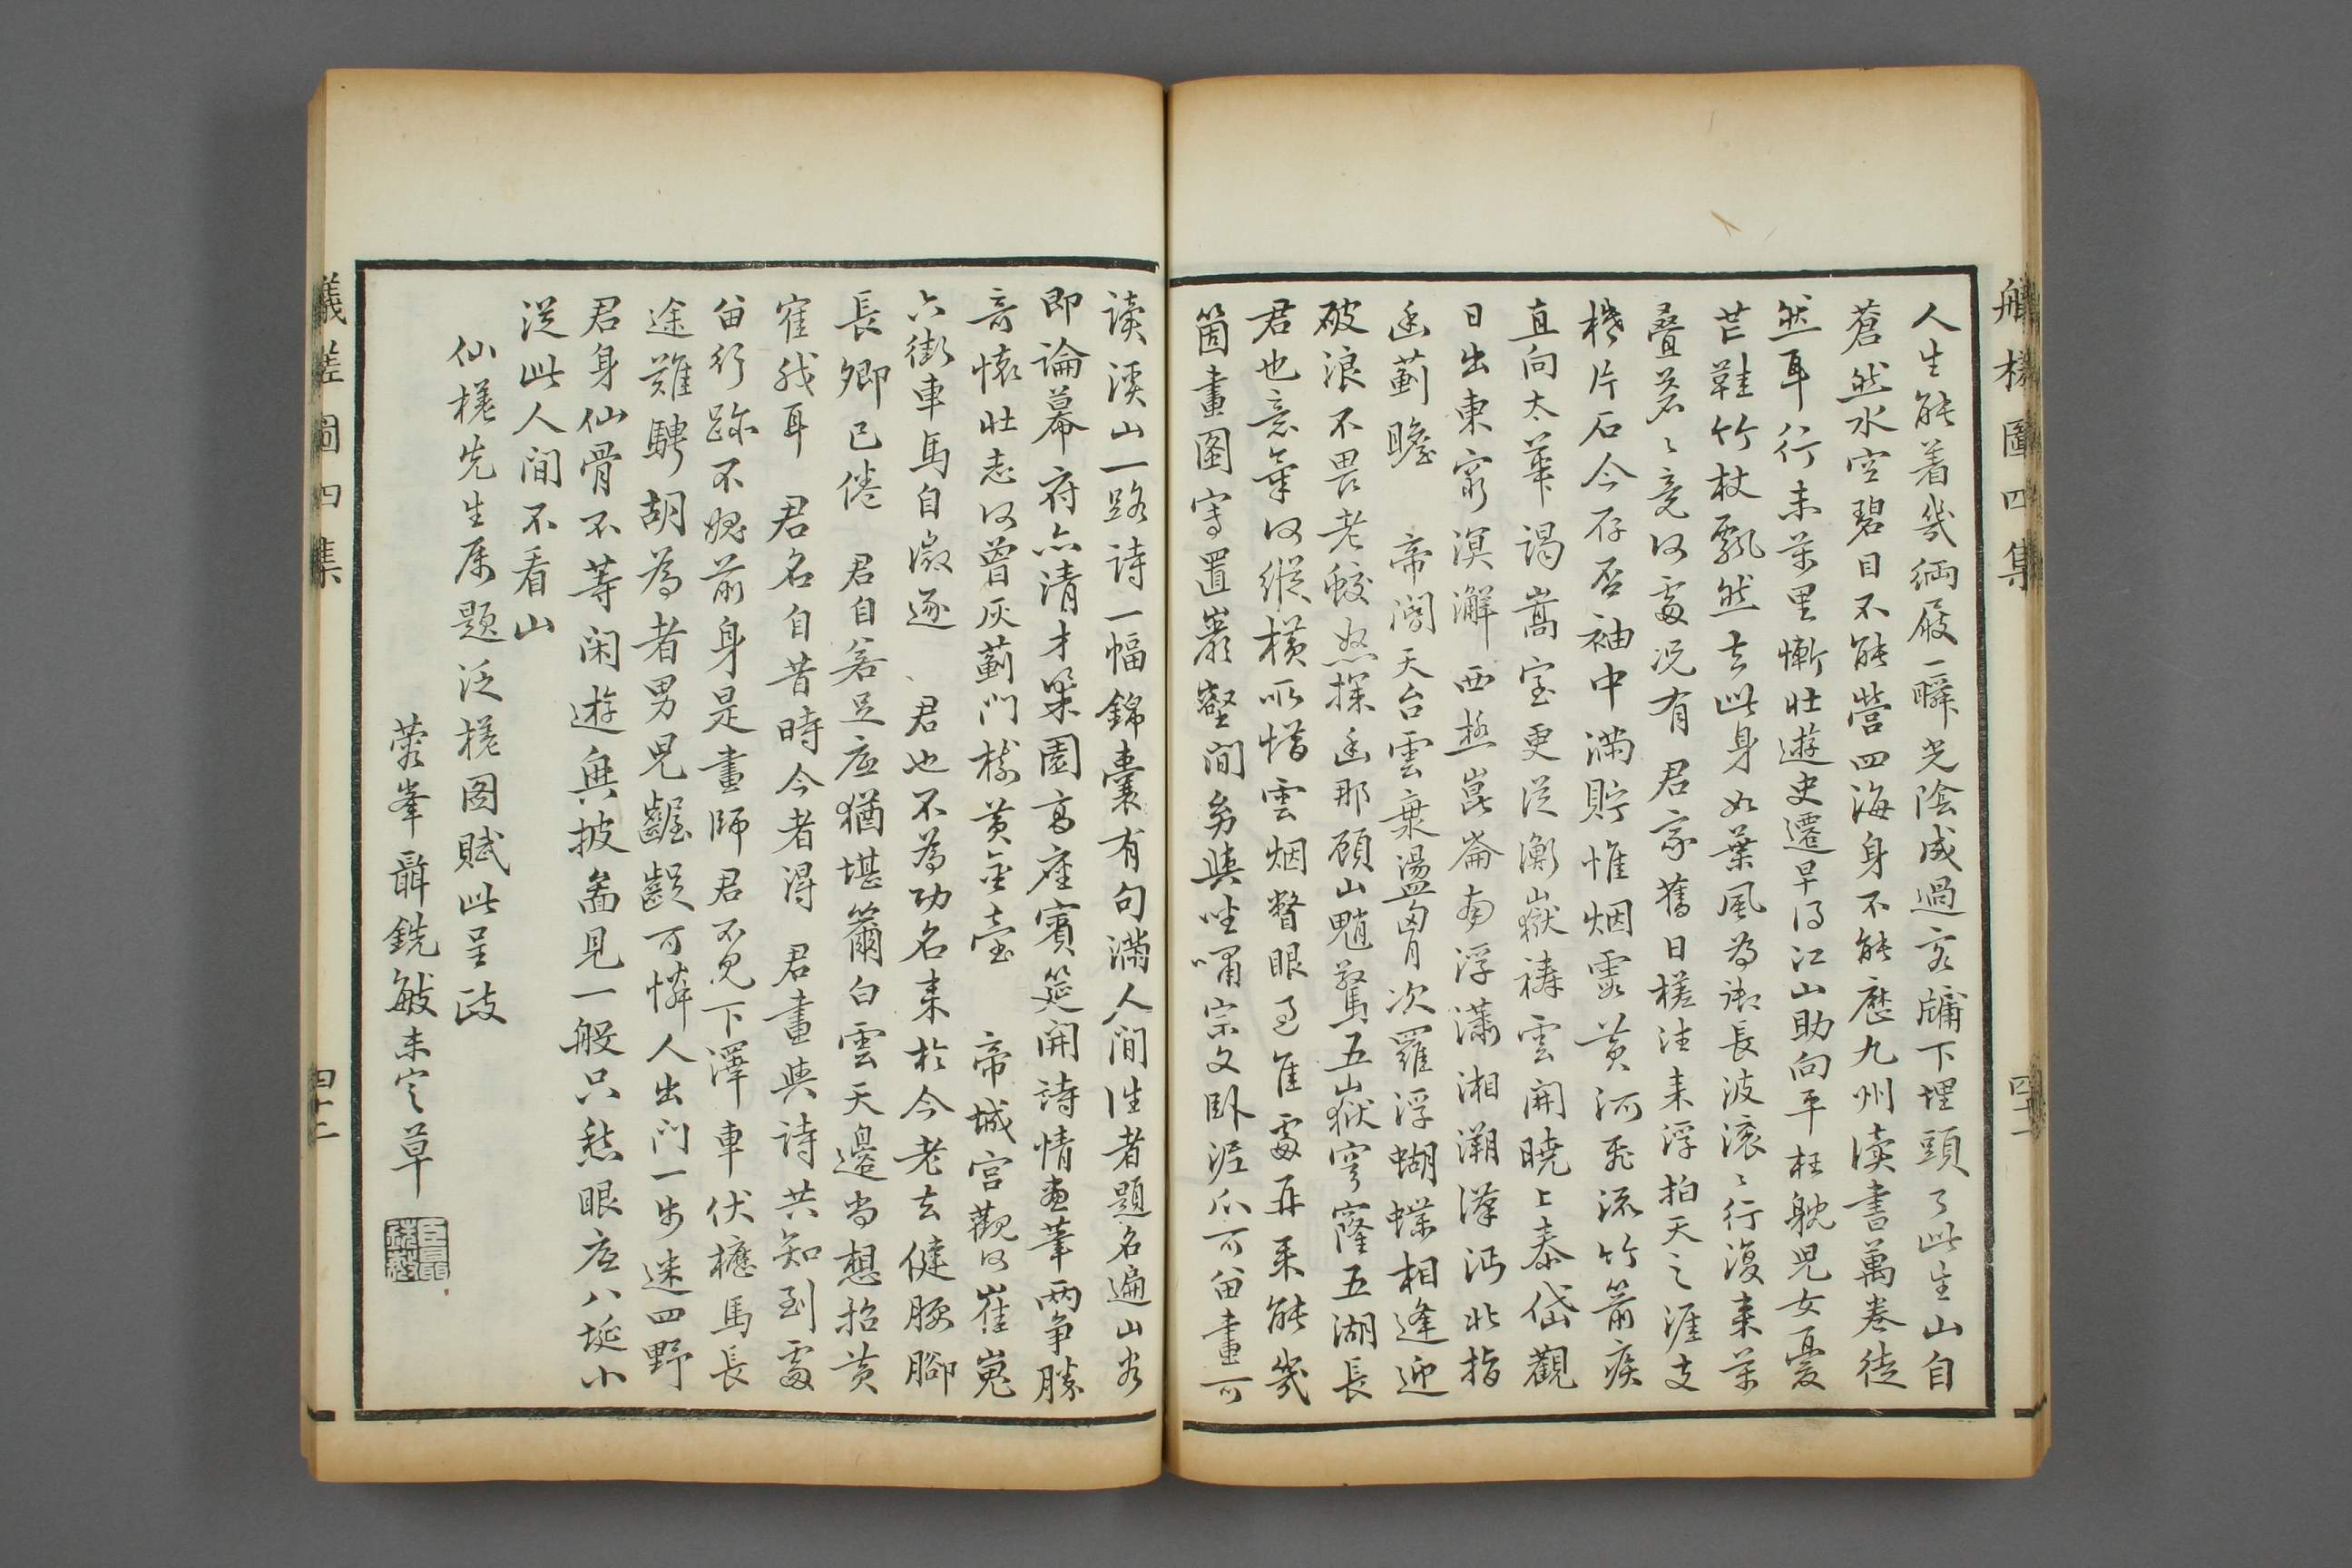 人生能着幾緉屐一瞬光陰成過客牖下埋頭了此生山自
蒼然水空碧目不能營四海身不能歷九州讀書萬卷徒
然耳行未萬里慚壯遊史遷早得江山助向平枉耽兒女憂
芒鞋竹杖飄然去此身如葉風為御長波滾〻行復来萬
疊君〻竟何處況有君家舊日槎往来浮拍天之涯支
機片石今存否袖中滿貯惟烟霞黃河飛流竹箭疾
直向太華謁嵩室更從衡嶽禱雲開曉上泰岱觀
日出東窮溟澥西極崑崙南浮瀟湘溯漢沔北指
幽薊瞻 帝閽天台雲乗盪胷次羅浮蝴蝶相逢迎
破浪不畏老蛟怒探幽那顧山魈驚五嶽穹窿五湖長
君也意氣何縱橫所惜雲烟瞥眼過隹處再来能幾
箇畫圖寫置巖壑間與坐嘯宗文卧泥爪可留畫可
讀溪山一路詩一幅錦囊有句滿人間往者題名遍山
即論幕府亦清才梁園高座賓筵開詩情畫筆兩争勝
音懷壯志何曾灰薊門樹黃金臺 帝城宮觀何崔嵬
六街車馬自徵逐 君也不為功名来於今老去健腰腳
長卿已倦 君自若足應猶堪籋白雲天邊当想招黃
隺我耳 君名自昔時今者得 君畫與詩共知到處
留行跡不媿前身是畫師君不見下澤車伏櫪馬長
途難騁胡為者男兒齷齪可憐人出門一步迷四野
君身仙骨不等闲遊興披圖見一般只愁眼底八埏小
從此人間不看山
仙槎先生属題泛槎图賦此呈政
蓉峯聶銑敏未定草
臣聶銑敏